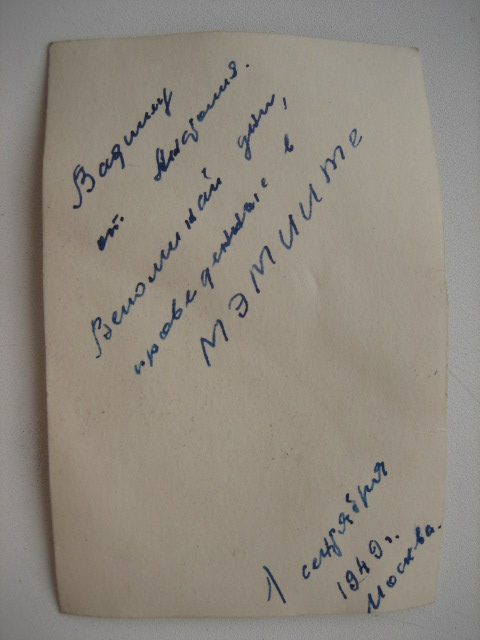 Вадиму
от Анатолия.
Вспоминай дни,
проведенные в
МЭМИИТе
1 сентября
1949 г.
Москва.